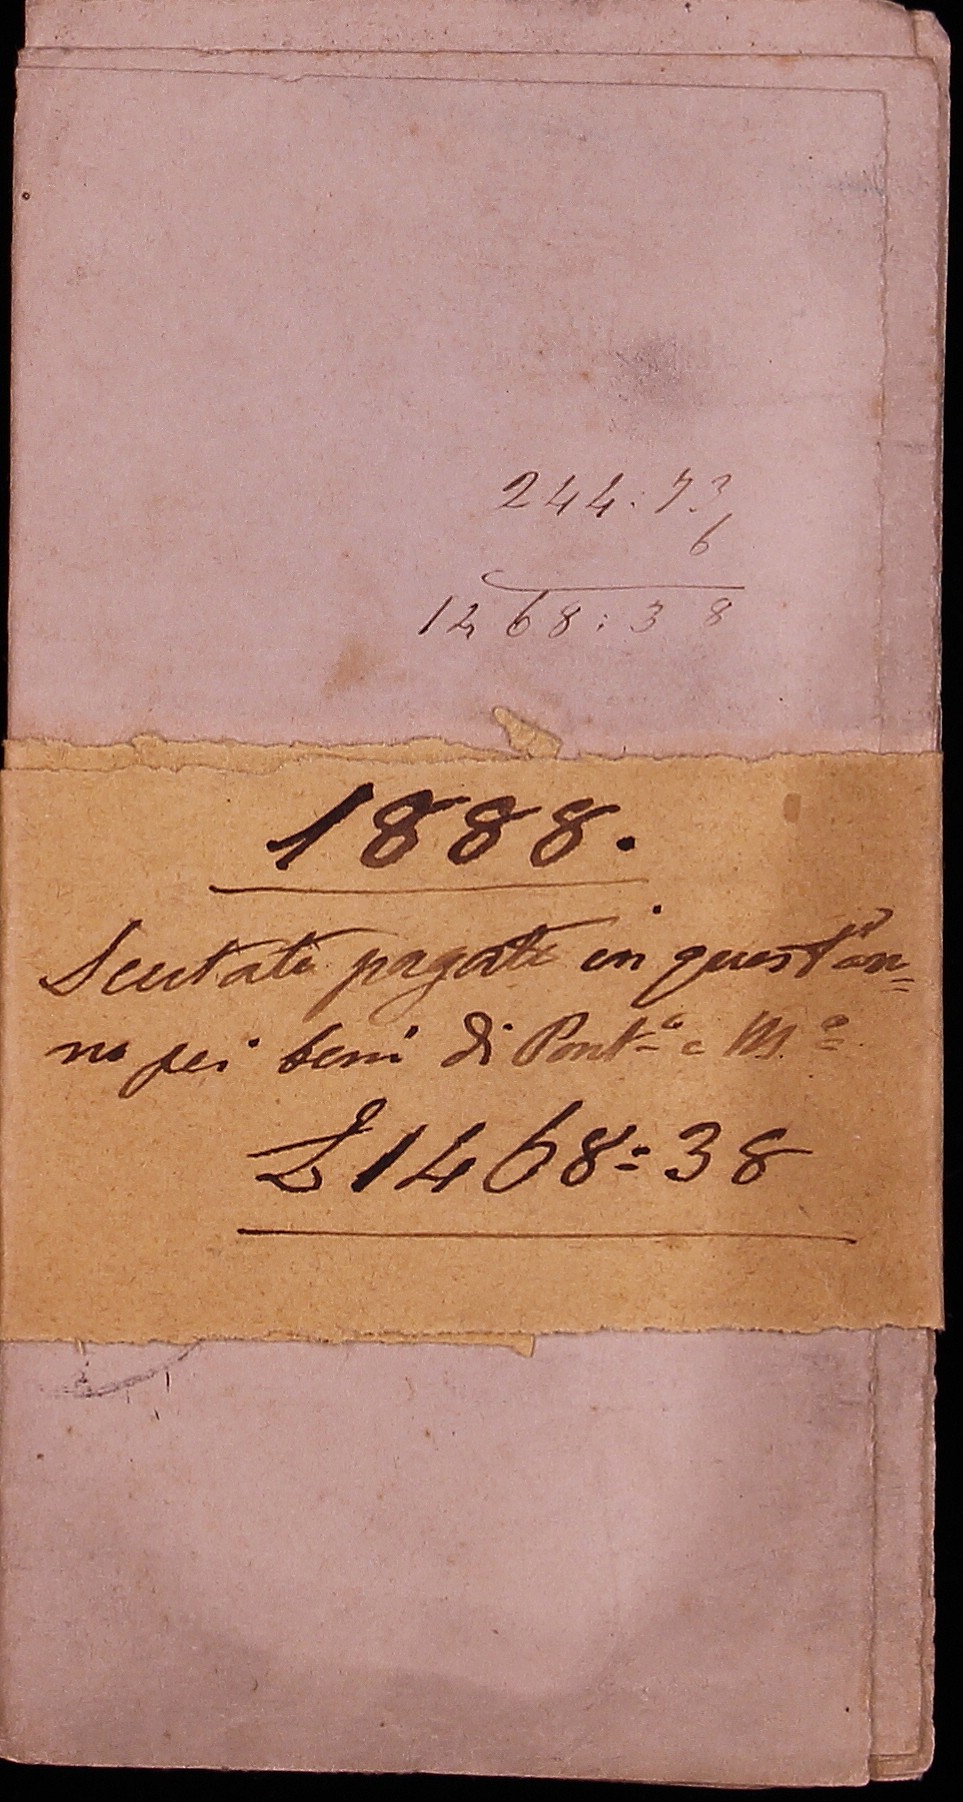 244:73
6
1268:38
1888.
Scutate pagate in quest'an=
no pei beni di Pont.ª e M.ª
£1468=38